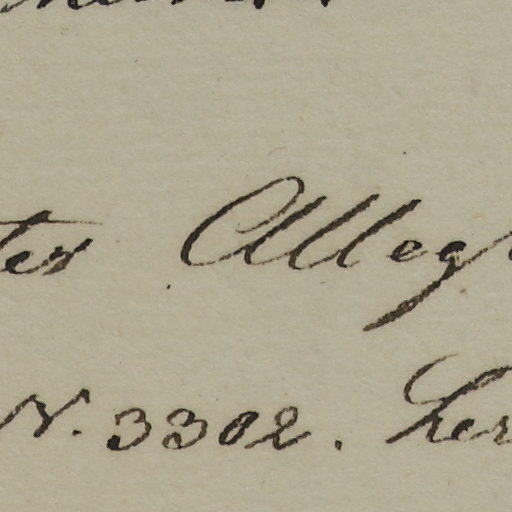 ter Alleg
N. 3302. Ler